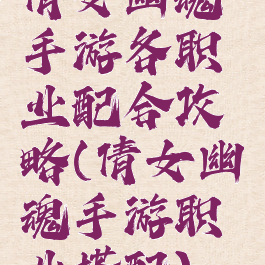 倩女幽魂
手游各职
业配合攻
略(倩女幽
魂手游职
业搭配)